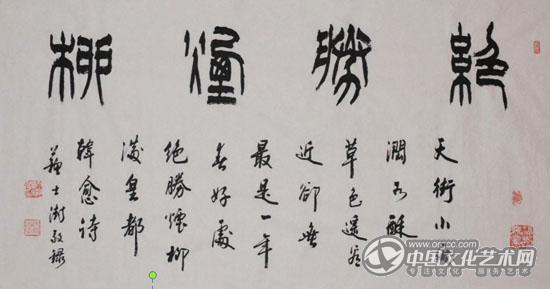 絕勝煙柳
天街小雨
潤如酥
草色遙看
近卻無
最是一年
春好處
絕勝煙柳
滿皇都
韓愈詩
蘇士澍敬録
www.orgcc.com
中国文化艺术网